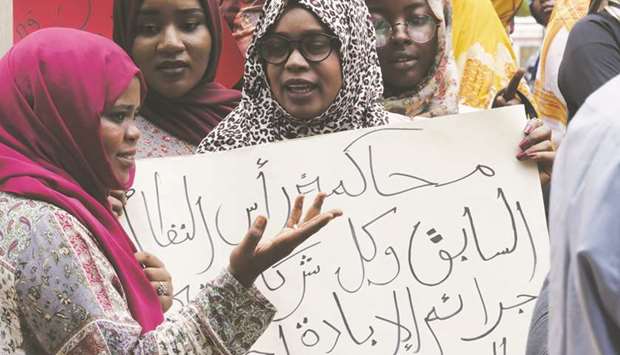 محاكمة رأس النظا
السابق وكل شركا
جرائم الإبادة